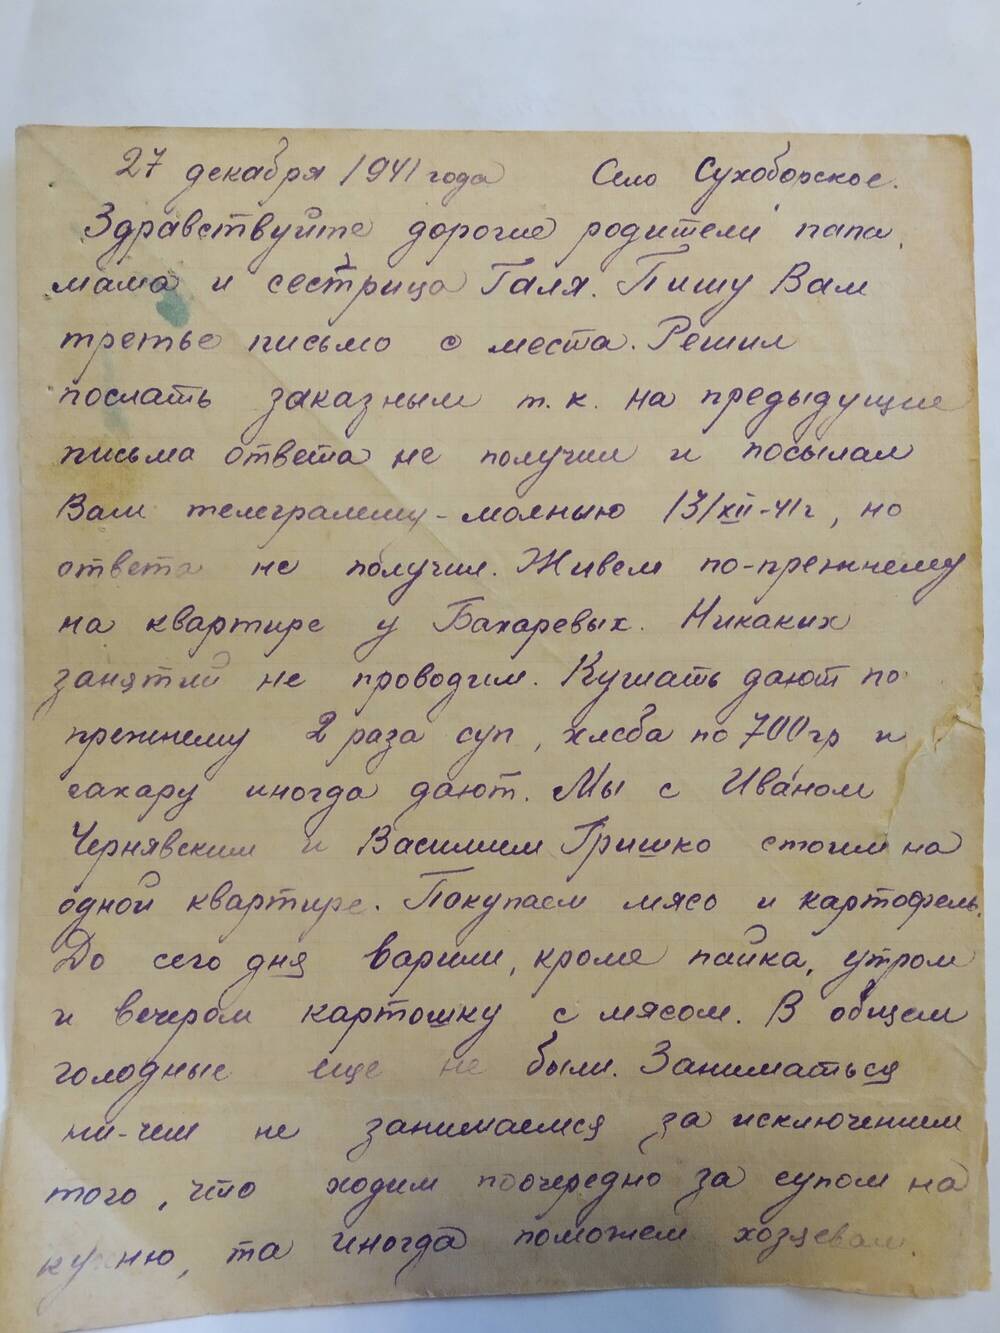 27 декабря 1941 года Село Сухоборское.
Здравствуйте дорогие родители папа,
мама и сестрица Галя. Пишу Вам
третье письмо с места. Решил
послать заказным т.к. на предыдущие
письма ответа не получил и посылал
Вам телеграмму-молнию 13/XII-41г, но
ответа не получил. Живем по-прежнему
на квартире у Бахаревых. Никаких
занятий не проводим. Кушать дают по
прежнему 2 раза суп, хлеба по 700 гр и
сахару иногда дают. Мы с Иваном
Чернявским и Василием Гришко стоим на
одной квартире. Покупаем мясо и картофель.
До сего дня варили, кроме пайка, утром
и вечером картошку с мясом. В общем
голодные еще не были. Заниматься
ни-чем не занимаемся за исключением
того, что ходим поочередно за супом на
кухню, та иногда поможем хозяевам.